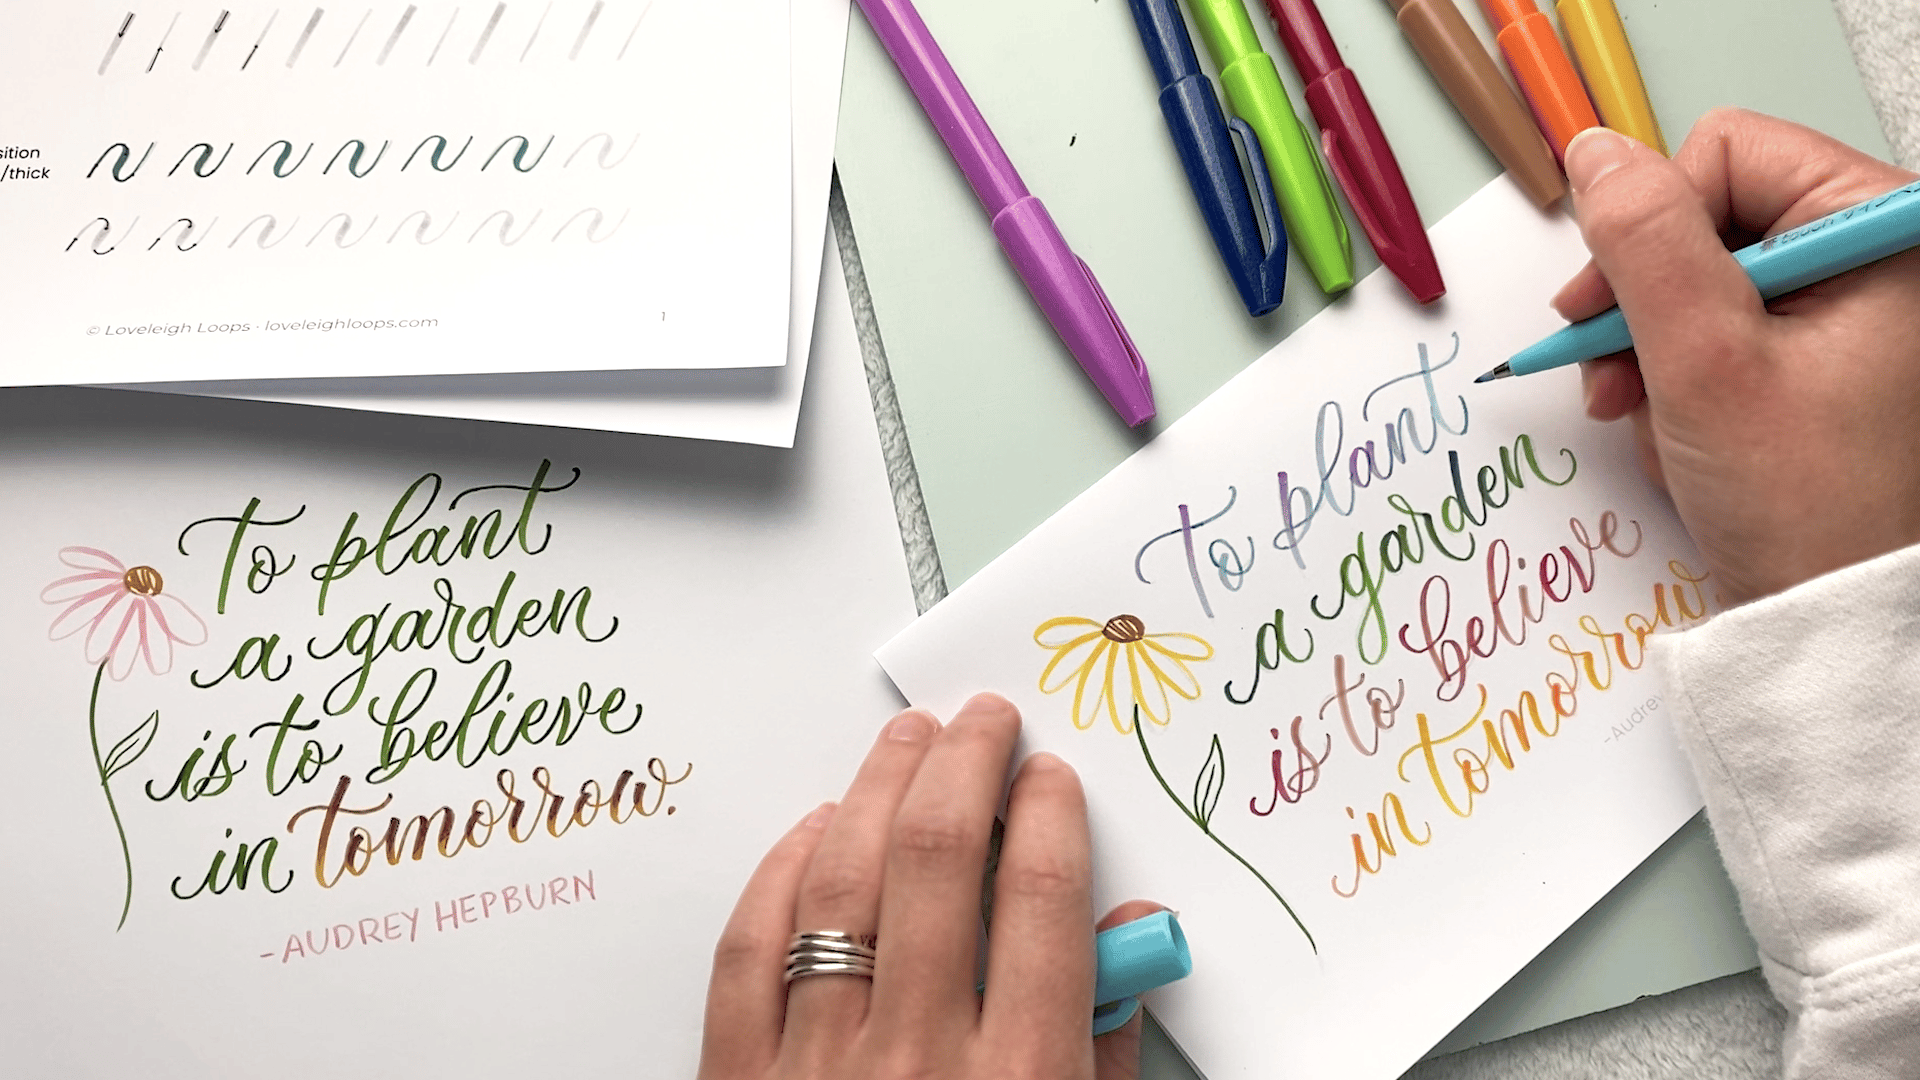 sition
/thick
© Loveleigh Loops · loveleighloops.com
1
To plant
a garden
is to believe
in tomorrow.
-AUDREY HEPBURN
To plant
a garden
is to believe
in tomorrow.
-Audrey
touch